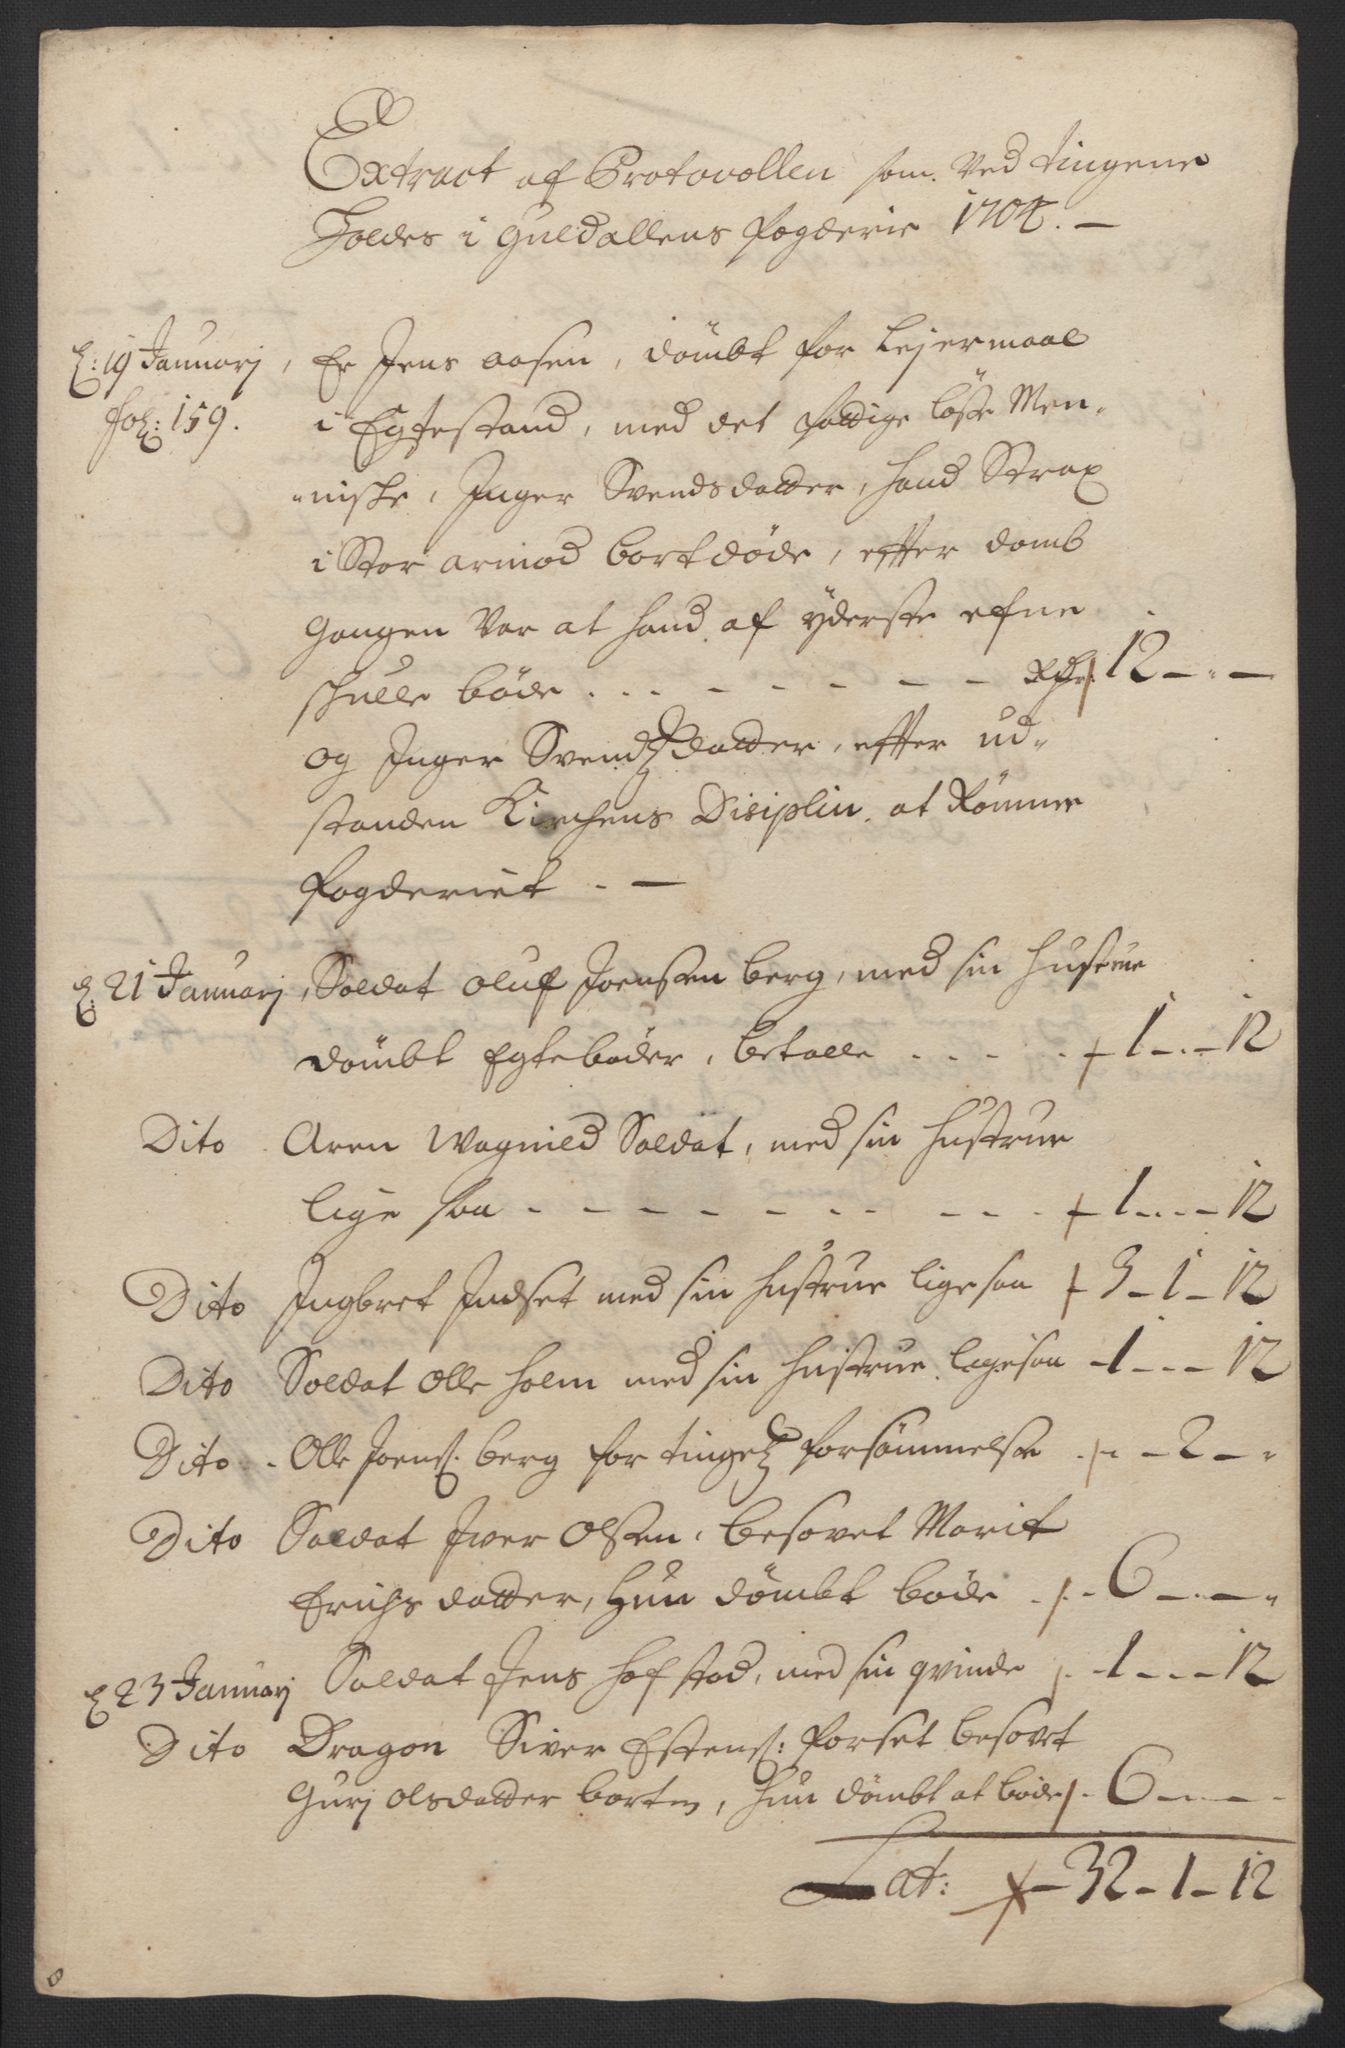 Extract af Protocollen som Ved tingene
Holdes i Guldallens fogderie 1704. —
D: 19 Januarj, Er Jens Aasen, dömbt for Lejermaal
fol: 159. i Egtestand, med det fattige löse Men-
niske, Inger Svendsdatter, hand Strax
i Stor armod bortdøde, effter domb
Gangen Var at hand af yderste efne
skulle böde . . . - - - - - Rdr 12 - " -
og Inger Svendsdatter, effter ud-
standen Kirchens Disiplin. at Römme
fogderiet . —
D 21 Januarj, Soldat Oluf Joensen berg, med sin hustrue
dömbt Egtebøder, betalle . . . - . 1 - . - 12
Dito Aren Wagnild Soldat, med sin hustrue
lige saa - - - - - - - - - - 1 - . - 12
Dito Ingbret Indset med sin hustrue ligesaa 3 - 1 - 12
Dito Soldat Olle holm med sin hustrue ligesaa - 1 - - - 12
Dito . Olle Joens. berg for tingets forsömmelse . - 2 - "
Dito Soldat Iver Olsen, besovet Marit
Erichsdatter, hun dömbt böde . - 6 - . - "
D 23 Januarj Soldat Jens hofstad, med sin qvinde . - 1 - . - 12
Dito Dragon Siver Estens: forset besovet
Gurj Olsdatter borten, hun dömbt at böde - 6 - . - -
Lat: - 32 - 1 - 12